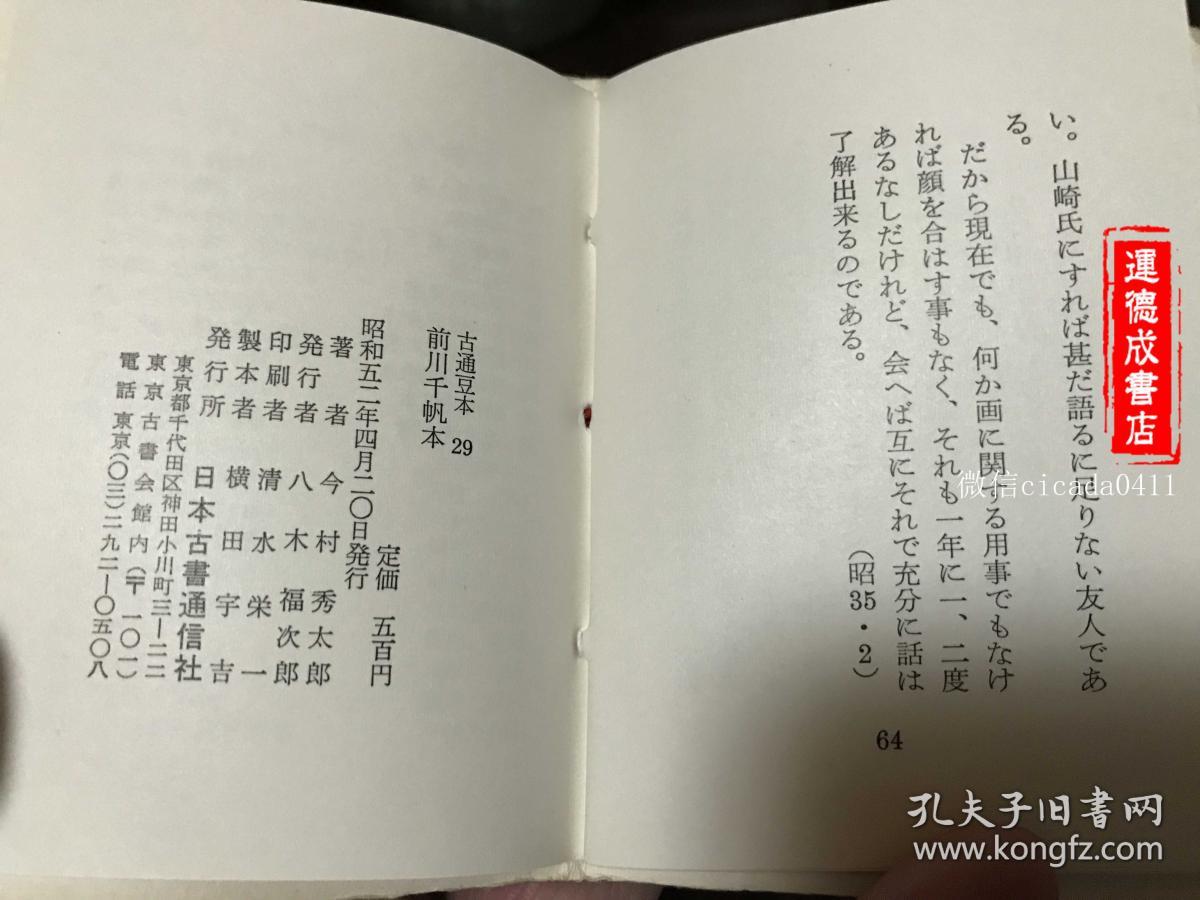 い。山崎氏にすれば甚だ語るに足りない友人であ
る。
だから現在でも、何か画に関する用事でもなけ
れば顔を合はす事もなく、それも一年に一、二度
あるなしだけれど、会へば互にそれで充分に話は
了解出来るのである。
（昭35・2）
64
古通豆本 29
前川千帆本
昭和五二年四月二〇日発行
定価 五百円
著者 今村秀太郎
発行者 八木福次郎
印刷者 清水栄一
製本者 横田宇吉
発行所 日本古書通信社
東京都千代田区神田小川町三—二二
東京古書会館内（〒一〇一）
電話 東京（〇三）二九二—〇五〇八
運德成書店
微信cicada0411
孔夫子旧书网
www.kongfz.com